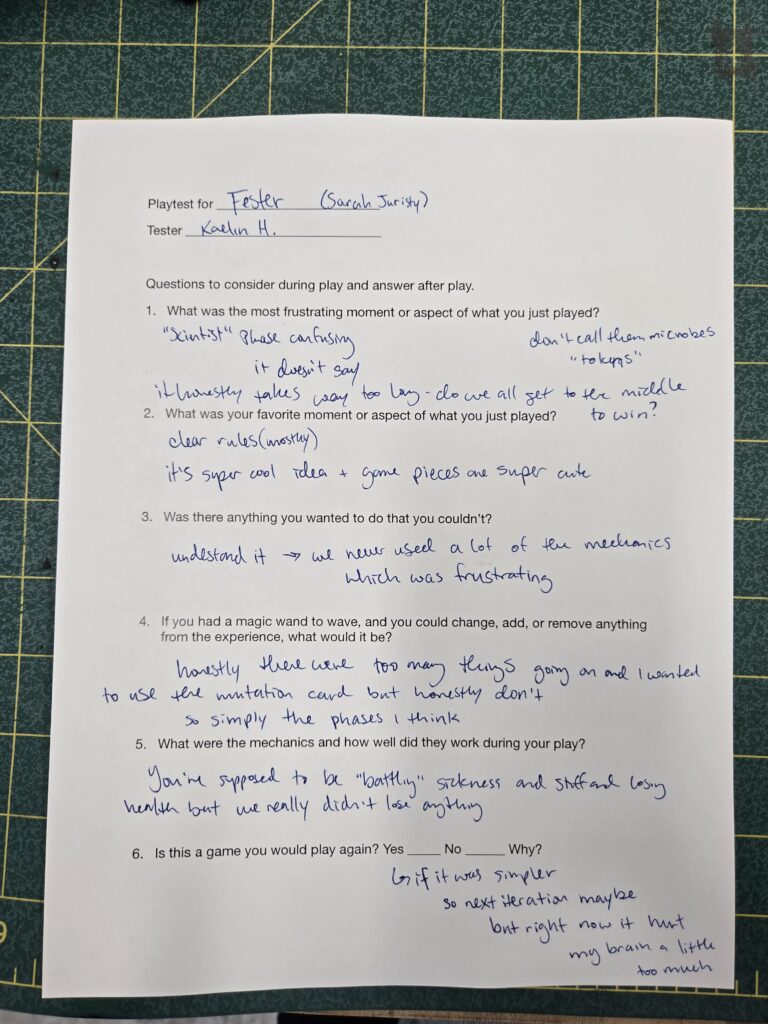 Playtest for Fester (Sarah Juristy)
Tester Kaelin H.
Questions to consider during play and answer after play.
1. What was the most frustrating moment or aspect of what you just played?
"Scintist" Phase confusing
don't call them microbes
it doesn't say
"tokens"
it honestly takes way too long - do we all get to the middle
to win?
2. What was your favorite moment or aspect of what you just played?
clear rules (mostly)
it's super cool idea + game pieces are super cute
3. Was there anything you wanted to do that you couldn't?
undestand it → we never used a lot of the mechanics
which was frustrating
4. If you had a magic wand to wave, and you could change, add, or remove anything
from the experience, what would it be?
honestly there were too many things going on and I wanted
to use the mutation card but honestly don't
so simply the phases I think
5. What were the mechanics and how well did they work during your play?
You're supposed to be "battling" sickness and stuff and losing
health but we really didn't lose anything
6. Is this a game you would play again? Yes _____ No _____ Why?
↳ if it was simpler
so next iteration maybe
but right now it hurt
my brain a little
too much
9